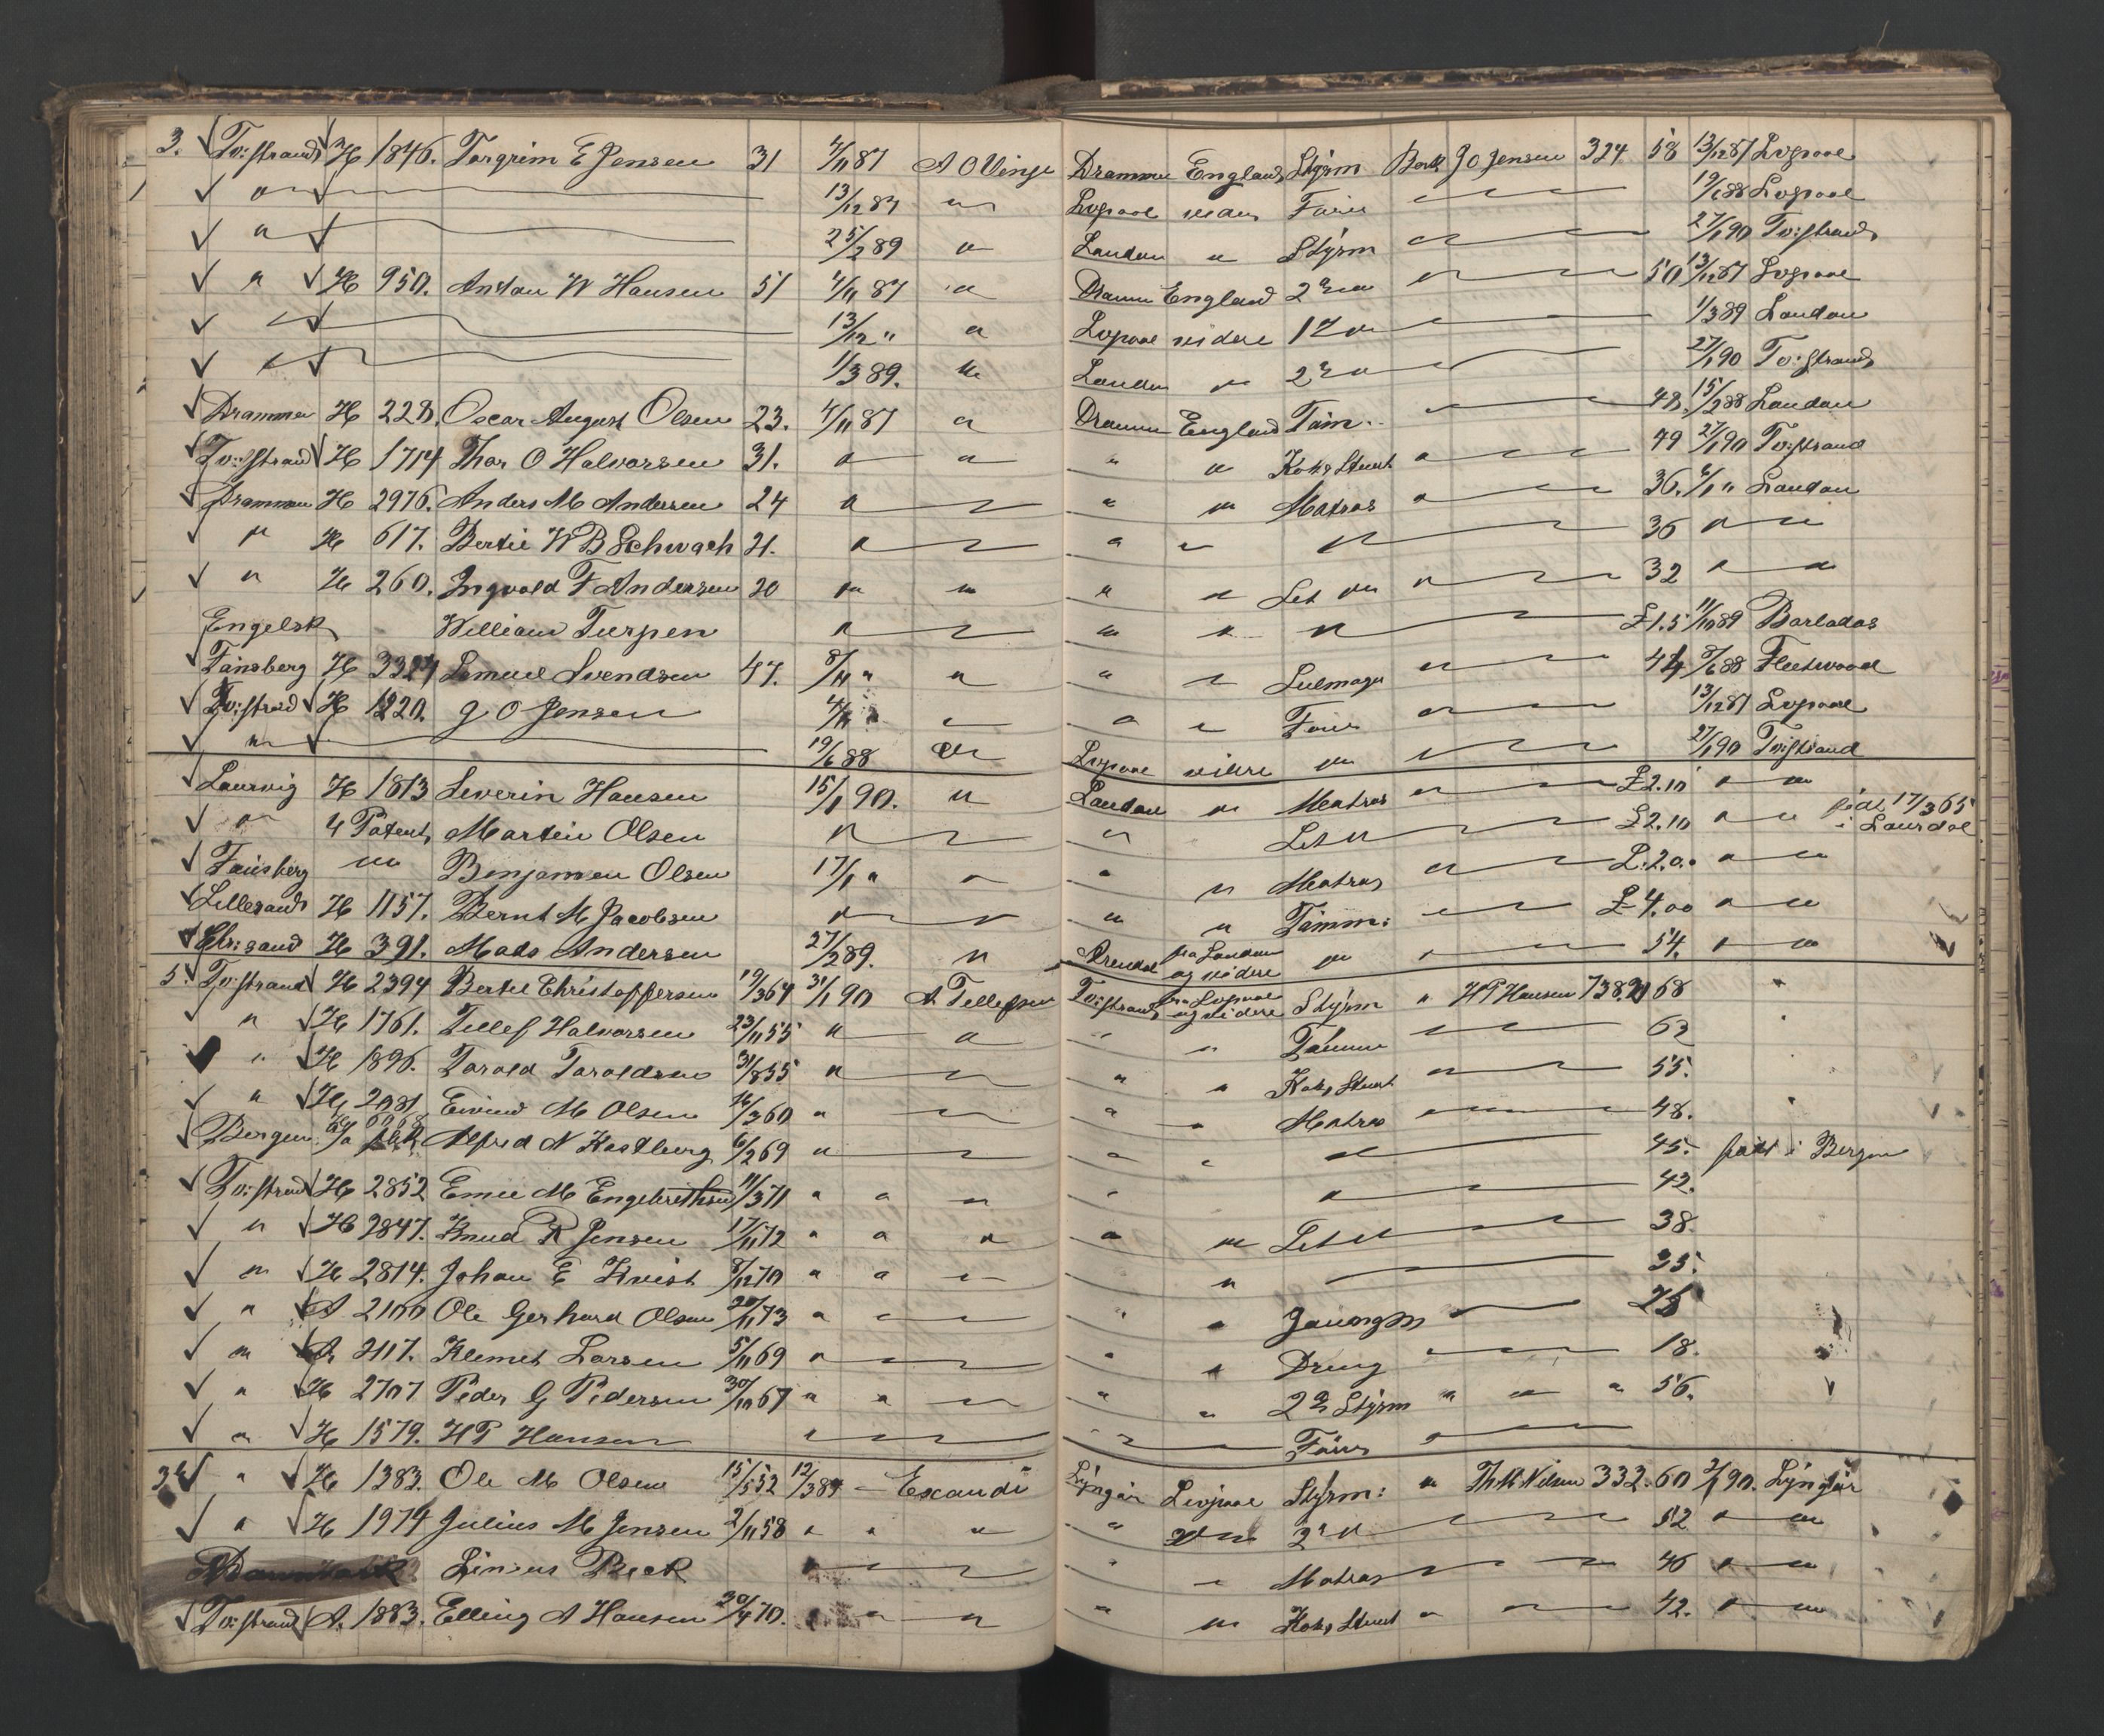 3. Tv:strand H 1846. Torgrim E Jensen 31 4/11 87 A O Vinje Drammen England Styrm Bark J O Jensen 324 58 13/12 87 Lvpool
" 13/12 87 " Lvpool videre Fører " 19/6 88 Lvpool
" 25/2 89 " London " Styrm " 27/1 90 Tv:strand
" H 950. Anton W Hansen 51 4/11 87 " Dramm England 2den " 50 13/12 87 Lvpool
13/12 " " Lvpool videre 1 " 1/3 89 London
1/3 89. " London " 2 " 27/1 90 Tv:strand
Drammen H 228. Oscar August Olsen 23. 4/11 87 " Dramm England Tøm. " 48. 15/2 88 London
Tv:strand H 1714 Thor O Halvorsen 31. " " " " Kok & Stuert " 49 27/1 90 Tv:strand
Drammen H 2976. Anders M Andersen 24 " " " Matros " 36. 6/1 " London
" H 617. Bertil W B Schwach 21. " " " " 36 " "
" H 260. Ingvald F Andersen 20 " " " " Let " " 32 " "
Engelsk William Turpen " " " " £1.5 11/10 89 Barbados
Tønsberg H 3324 Lemuel Svendsen 47. 8/11 " " " " Seilmager " 44 8/6 88 Fleetwood
Tv:strand H 1220. J O Jensen 4/11 " " " " Fører " 13/12 87 Lvpool
" 19/6 88 " Lvpool videre " " 27/1 90 Tv:strand
Laurvig H 1813 Severin Hansen 15/1 90. " London " Matros " £2.10 " "
" " Patent Martin Olsen " " Let " £2.10 " " født 17/3 65 i Laurdal
Tønsberg " Benjamen Olsen 17/1 " " " " Matros " £2.0. " "
Lillesand H 1157. Bernt M Jacobsen " " " Tømm: " £4.00 " "
Chr:sand H 391. Mads Andersen 27/2 89. " Arendal fra London og videre " " 54. " "
5. Tv:strand H 2394 Bertel Christoffersen 19/3 64 31/1 90 A Tellefsen Tv:strand fra Lvpool og videre Styrm " H P Hansen 738.21 68 "
" H 1761. Tellef Halvorsen 23/11 55 " " " " Tømm " 62
" H 1896. Tarald Taraldsen 31/8 55 " " " " Kok & Stuert " 55.
" H 2081. Eivind M Olsen 16/3 60 " " " " Matros " 48. "
Bergen Alfred N Kastberg 6/2 69 " " " " 45. født i Bergen
Tv:strand H 2852 Emil M Engebrethsen 11/3 71 " " " " " 42.
" H 2847. Knud R Jensen 17/11 72 " " " " " Let " 38.
" H 2814. Johan E Kvist 8/12 70 " " " " 35.
" A 2100 Ole Gerhard Olsen 20/11 73 " " " " Jungm 25
" A 2117. Klemet Larsen 5/11 69 " " " " Dreng 18.
" H 2707 Peder G Pedersen 30/10 67 " " " " " 2den Styrm " " " 56.
" H 1579. H P Hansen " " " Fører "
3 " H 1383. Ole M Olsen 15/5 52 12/3 89 Excandi Lyngør Lvpool Styrm: " Th Nilsen 332. 60 2/1 90. Lyngør
" H 1974 Julius M Jensen 2/11 58 " " " " " 2den " 52 " "
Linius Beck " " " Matros " 46 " "
Tv:strand A. 1883. Elling A Hansen 20/4 70. " " " " Kok & Stuert " " 42. " "